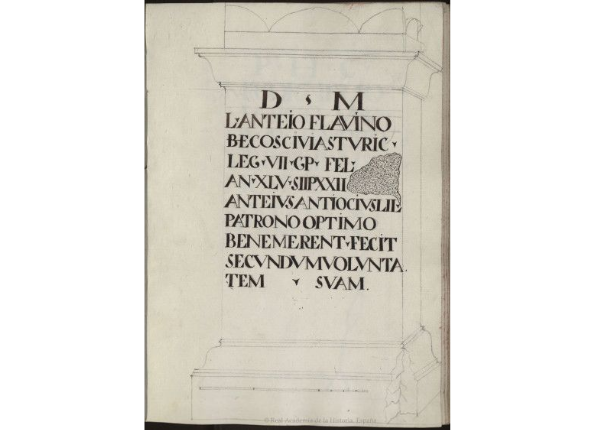 D ❟ M
L·ANTEIO FLAVINO
BECOSCIVIASTVRIC ▾
LEG ▾ VII ▾ GP ▾ FEL
AN▾XLV▾SIIPXXII
ANTEIVSANTIOCIVSLIL
PATRONO OPTIMO
BENEMERENT▾FECIT
SECVNDVMVOLVNTA.
TEM ▾ SVAM.
© Real Academia de la Historia, España